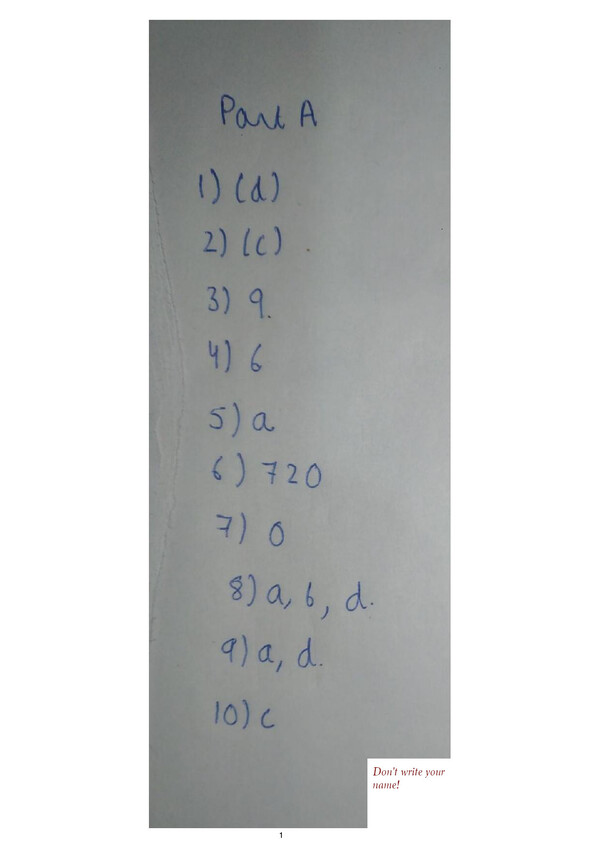 Part A
1) (d)
2) (c)
3) 9.
4) 6
5) a
6) 720
7) 0
8) a, b, d.
9) a, d.
10) c
Don't write your
name!
1